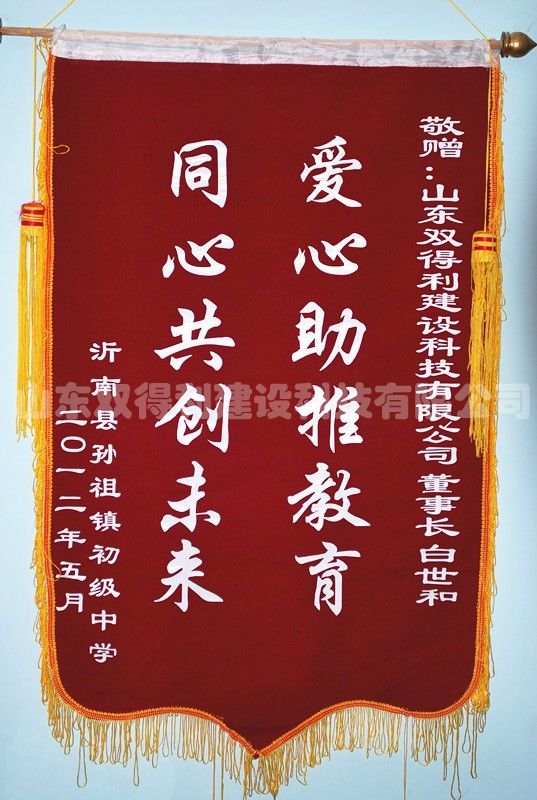 敬赠：山东双得利建设科技有限公司 董事长 白世和
爱心助推教育
同心共创未来
沂南县孙祖镇初级中学
二〇一二年五月
山东双得利建设科技有限公司